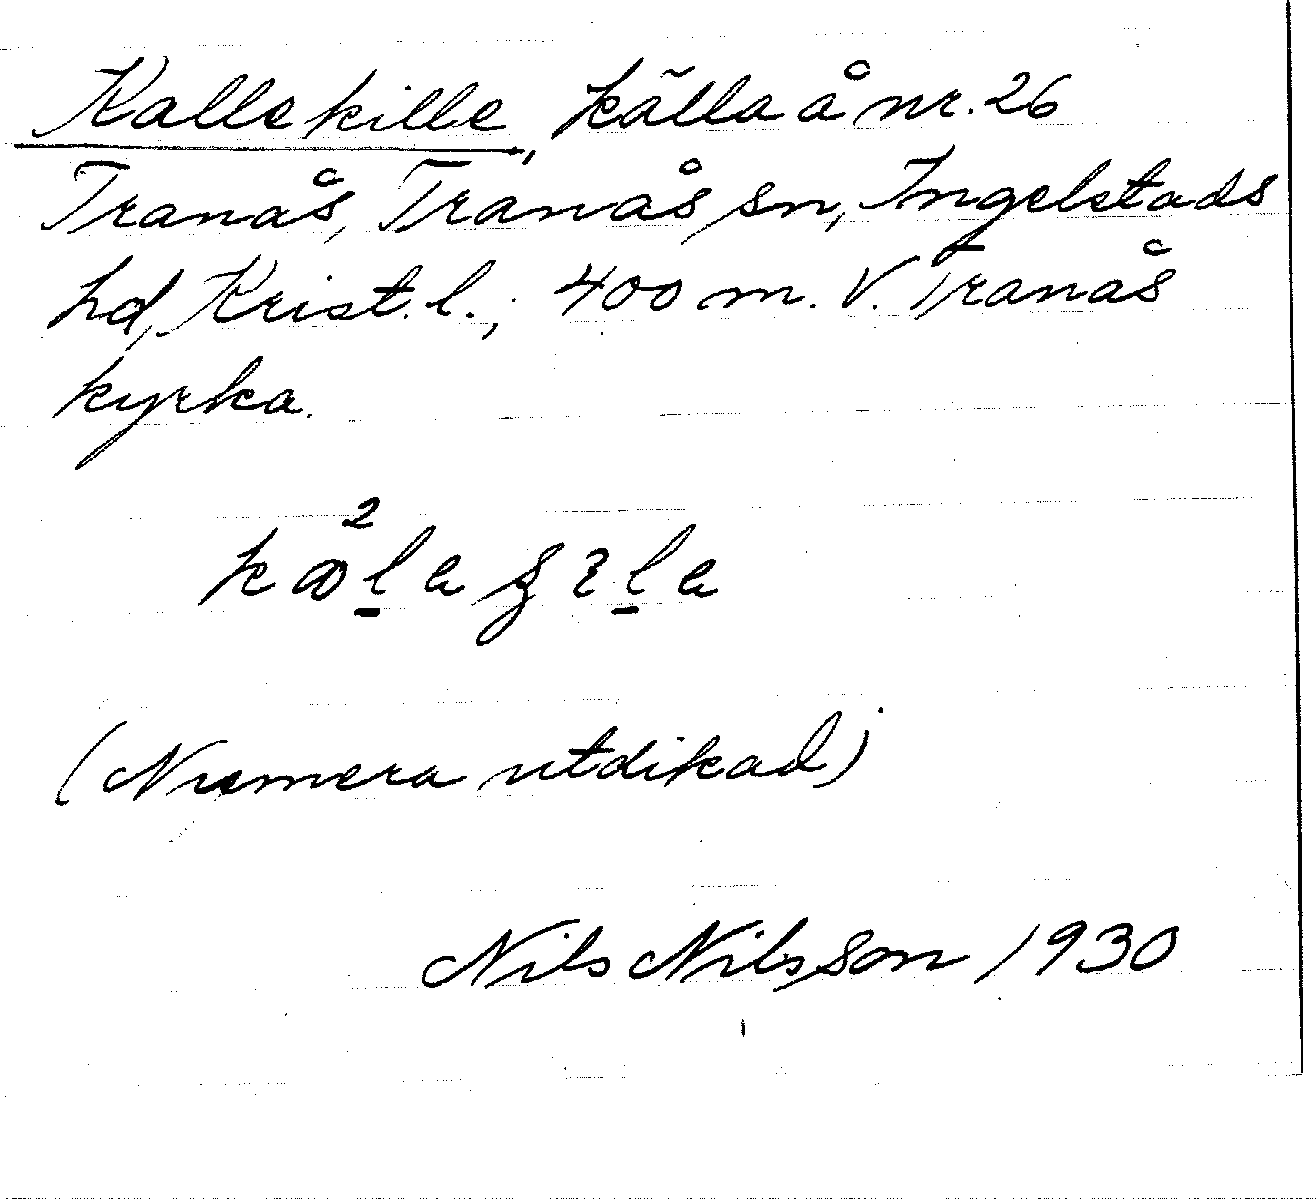 Kallekille, källa å nr. 26
Tranås, Tranås sn, Ingelstads
hd, Krist. l.; 400 m. V. Tranås
kyrka.
(Numera utdikad)
Nils Nilsson 1930